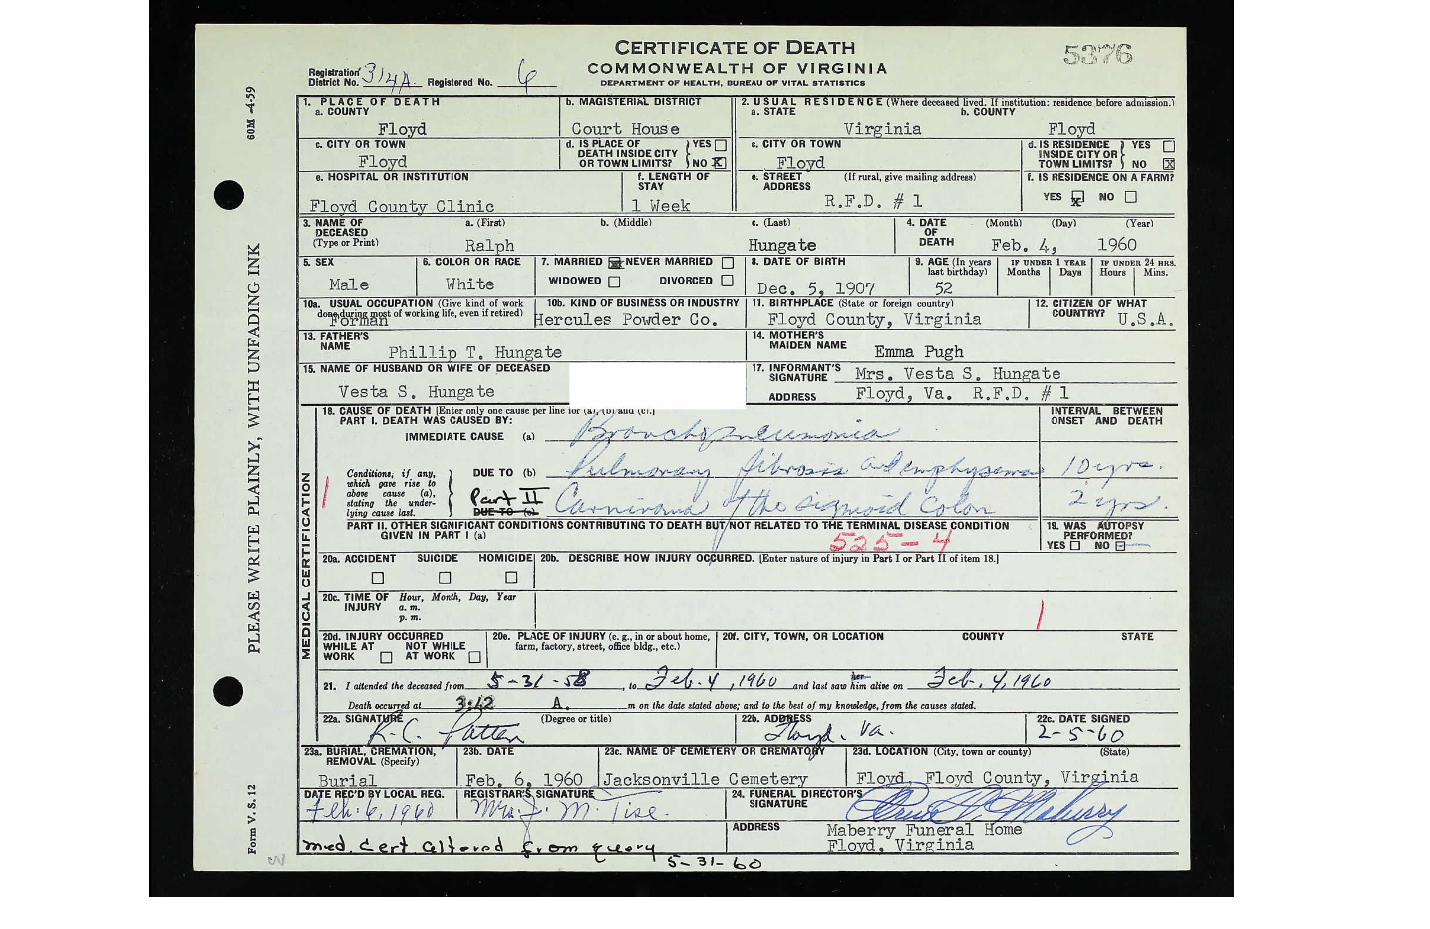 CERTIFICATE OF DEATH
COMMONWEALTH OF VIRGINIA
DEPARTMENT OF HEALTH, BUREAU OF VITAL STATISTICS
5376
Registration District No. 314A Registered No. 6
60M -4-59
PLEASE WRITE PLAINLY, WITH UNFADING INK
Form V. S. 12
1. PLACE OF DEATH
a. COUNTY
Floyd
b. MAGISTERIAL DISTRICT
Court House
2. USUAL RESIDENCE (Where deceased lived. If institution: residence before admission.)
a. STATE b. COUNTY
Virginia Floyd
c. CITY OR TOWN
Floyd
d. IS PLACE OF DEATH INSIDE CITY OR TOWN LIMITS? YES NO X
c. CITY OR TOWN
Floyd
d. IS RESIDENCE INSIDE CITY OR TOWN LIMITS? YES NO X
e. HOSPITAL OR INSTITUTION
Floyd County Clinic
f. LENGTH OF STAY
1 Week
e. STREET ADDRESS (If rural, give mailing address)
R.F.D. #1
f. IS RESIDENCE ON A FARM?
YES X NO
3. NAME OF DECEASED (Type or Print)
a. (First) b. (Middle) c. (Last)
Ralph Hungate
4. DATE OF DEATH (Month) (Day) (Year)
Feb. 4, 1960
5. SEX
Male
6. COLOR OR RACE
White
7. MARRIED NEVER MARRIED
WIDOWED DIVORCED
8. DATE OF BIRTH
Dec. 5, 1907
9. AGE (In years last birthday)
52
IF UNDER 1 YEAR
Months Days
IF UNDER 24 HRS.
Hours Mins.
10a. USUAL OCCUPATION (Give kind of work done during most of working life, even if retired)
Forman
10b. KIND OF BUSINESS OR INDUSTRY
Hercules Powder Co.
11. BIRTHPLACE (State or foreign country)
Floyd County, Virginia
12. CITIZEN OF WHAT COUNTRY?
U.S.A.
13. FATHER'S NAME
Phillip T. Hungate
14. MOTHER'S MAIDEN NAME
Emma Pugh
15. NAME OF HUSBAND OR WIFE OF DECEASED
Vesta S. Hungate
17. INFORMANT'S SIGNATURE Mrs. Vesta S. Hungate
ADDRESS Floyd, Va. R.F.D. #1
MEDICAL CERTIFICATION
18. CAUSE OF DEATH [Enter only one cause per line for (a), (b) and (c).]
PART I. DEATH WAS CAUSED BY:
INTERVAL BETWEEN ONSET AND DEATH
IMMEDIATE CAUSE (a) Bronchopneumonia
Conditions, if any, which gave rise to above cause (a), stating the underlying cause last.
DUE TO (b) Pulmonary fibrosis and emphysema 10 yrs.
Part II
DUE TO (c)
Carcinoma of the sigmoid colon 2 yrs.
PART II. OTHER SIGNIFICANT CONDITIONS CONTRIBUTING TO DEATH BUT NOT RELATED TO THE TERMINAL DISEASE CONDITION GIVEN IN PART I (a)
525-4
19. WAS AUTOPSY PERFORMED?
YES NO
20a. ACCIDENT SUICIDE HOMICIDE
20b. DESCRIBE HOW INJURY OCCURRED. [Enter nature of injury in Part I or Part II of item 18.]
20c. TIME OF INJURY Hour, Month, Day, Year
a. m.
p. m.
20d. INJURY OCCURRED
WHILE AT WORK NOT WHILE AT WORK
20e. PLACE OF INJURY (e. g., in or about home, farm, factory, street, office bldg., etc.)
20f. CITY, TOWN, OR LOCATION COUNTY STATE
21. I attended the deceased from 5-31-58, to Feb. 4, 1960 and last saw her him alive on Feb. 4, 1960
Death occurred at 3:42 A. m on the date stated above; and to the best of my knowledge, from the causes stated.
22a. SIGNATURE (Degree or title)
R.C. Patten
22b. ADDRESS
Floyd, Va.
22c. DATE SIGNED
2-5-60
23a. BURIAL, CREMATION, REMOVAL (Specify)
Burial
23b. DATE
Feb. 6, 1960
23c. NAME OF CEMETERY OR CREMATORY
Jacksonville Cemetery
23d. LOCATION (City, town or county) (State)
Floyd, Floyd County, Virginia
DATE REC'D BY LOCAL REG.
Feb. 6, 1960
REGISTRAR'S SIGNATURE
Mrs. J. M. Tise.
24. FUNERAL DIRECTOR'S SIGNATURE
Maberry
ADDRESS
Maberry Funeral Home
Floyd, Virginia
med. cert altered from query
5-31-60